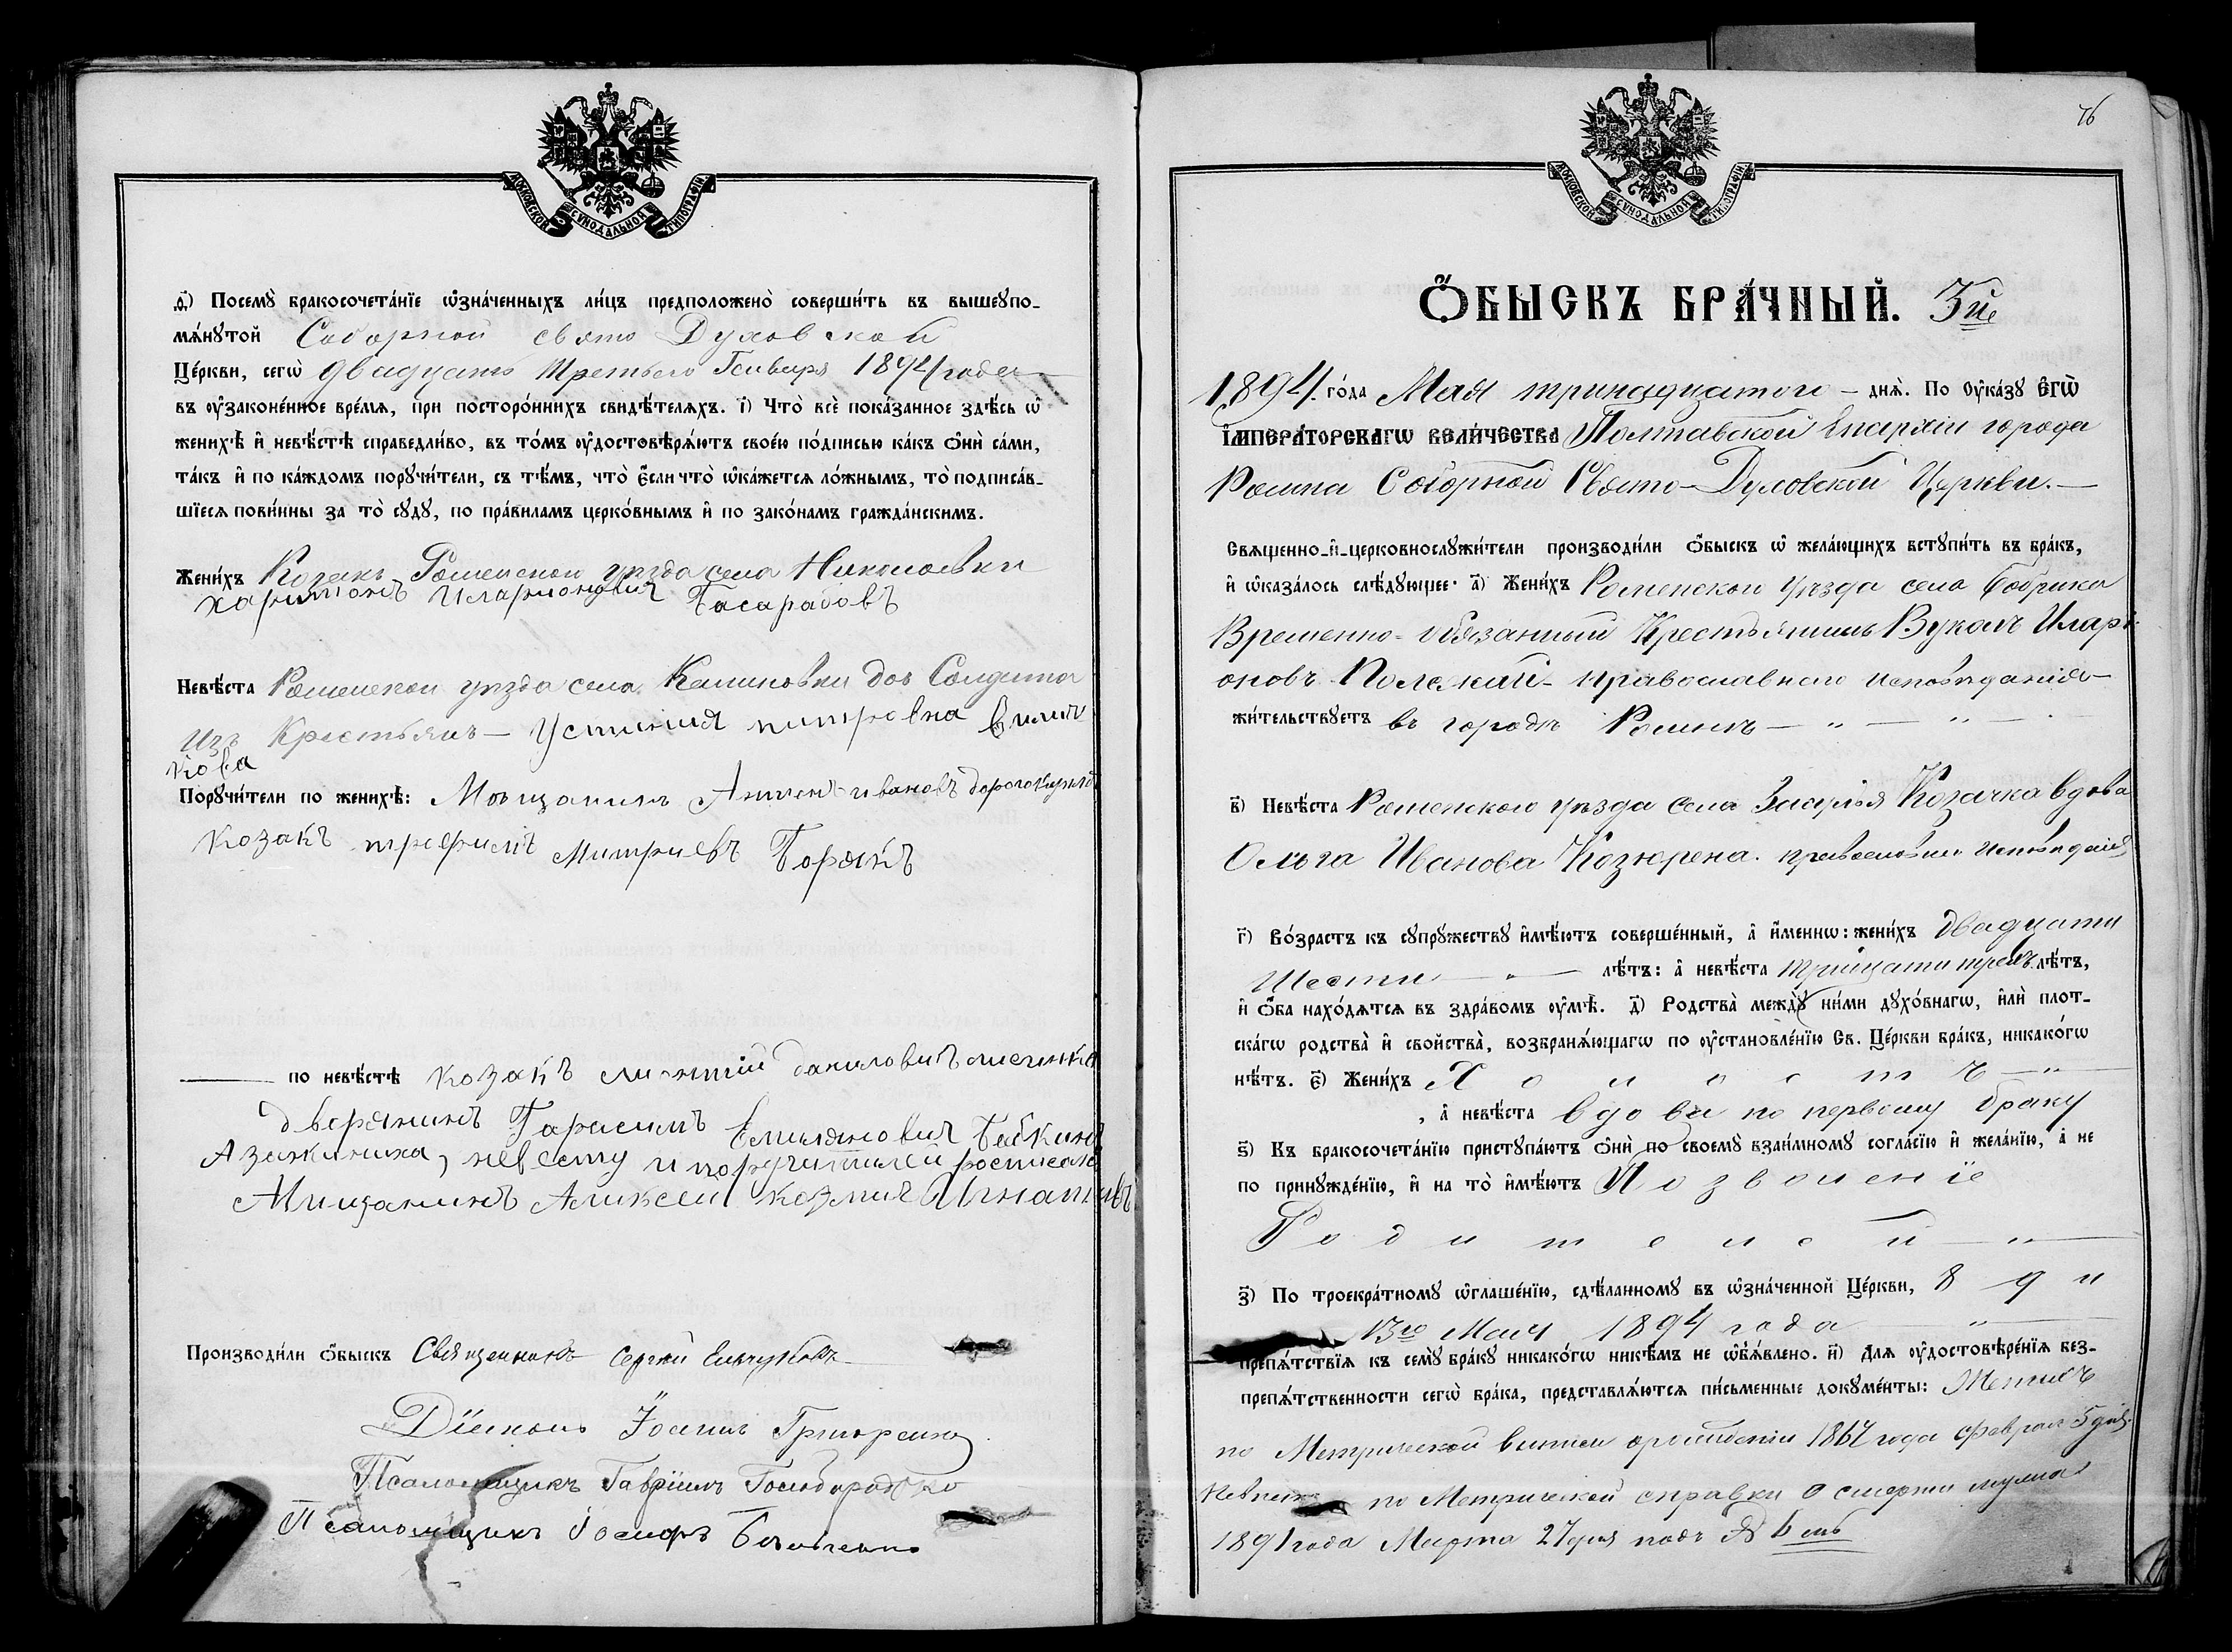 МОСКОВСКОЙ СѴНОДАЛЬНОЙ ТИПОГРАФІИ.
ѳ҃) Посемꙋ̀ бракосочета́нїе ѡ҆зна́ченныхъ ли́цъ предположено̀ соверши́ть въ вышеꙋпо-
мѧ́нꙋтой Соборной свято Духовской
Це́ркви, сегѡ̀ двадцать третьего Генваря 1894 года
въ ᲂу҆законе́нное вре́мѧ, при посторо́ннихъ свидѣ́телѧхъ. і҃) Что̀ всѐ пока́занное здѣ́сь ѡ҆
женихѣ̀ и҆ невѣ́стѣ справедли́во, въ то́мъ ᲂу҆достовѣрѧ́ютъ свое́ю по́дписью ка́къ ѻ҆нѝ са́ми,
та́къ и҆ по ка́ждомъ порꙋчи́тели, съ тѣ́мъ, что̀ є҆́сли что̀ ѡ҆ка́жетсѧ ло́жнымъ, то̀ подписа́в-
шїесѧ пови́нны за то̀ сꙋдꙋ̀, по пра́виламъ церко́внымъ и҆ по зако́намъ гражда́нскимъ.
Жени́хъ Козакъ Роменского уезда села Николаевки
харитонъ Иларионович Басарабовъ
Невѣ́ста Роменского уезда села Калиновки доч Солдата
Изъ Крестьянъ — Устиния питровна Вилич
кова
Порꙋчи́тели по женихѣ̀: Мещанинъ Антонъ ивановъ
козакъ трефимъ митриевъ Борякъ
по невѣ́стѣ козакъ данилович
дверянинъ Гарасимъ Емилянович Бабкинъ
невесту и поручителей росписался
Мищанинъ Аликсей козмич Игнатиевъ
Производи́ли ѻ҆́быскъ Священникъ Сергий
Дїяконъ Іосипъ Григоренко
Псаломщикъ Гаврїилъ Голобородько
Псаломщикъ Іосифъ
76
МОСКОВСКОЙ СѴНОДАЛЬНОЙ ТИПОГРАФІИ.
Ѻ҆́БЫСКЪ БРА́ЧНЫЙ. 3й
1894. го́да Мая тринадцатого — днѧ̀. По ᲂу҆ка́зꙋ Є҆гѡ̀
І҆мпера́торскагѡ вели́чества Полтавской Епархіи города
Ромна Соборной Свято-Духовской Церкви. —
Свѧщенно-и҆-церковнослꙋжи́тели производи́ли ѻ҆́быскъ ѡ҆ жела́ющихъ встꙋпи́ть въ бра́къ,
и҆ ѡ҆каза́лось слѣ́дꙋющее: а҃) Жени́хъ Роменского уезда села Бобрика
Временно-обязанный Крестьянинъ Вуколъ Илари-
оновъ Полский православного исповеданія —
жи́тельствꙋетъ въ городе Ромне — „ — „ —
в҃) Невѣ́ста Роменского уезда села Засулья Козачка вдова
Ольга Иванова Козюрена. православн. исповеданія
г҃) Во́зрастъ къ сꙋпрꙋ́жествꙋ и҆мѣ́ютъ соверше́нный, а҆ и҆́менно: жени́хъ двадцати
шести — „ — лѣ́тъ: а҆ невѣ́ста трицати трехъ лѣ́тъ,
и҆ ѻ҆́ба нахо́дѧтсѧ въ здра́вомъ ᲂу҆мѣ̀. д҃) Родства̀ междꙋ̀ ни́ми дꙋхо́внагѡ, и҆лѝ плот-
ска́гѡ родства̀ и҆ свойства̀, возбранѧ́ющагѡ по ᲂу҆становле́нїю Св. Це́ркви бра́къ, никако́гѡ
нѣ́тъ. є҃) Жени́хъ Холостъ — „ —
, а҆ невѣ́ста вдова по первому браку
ѕ҃) Къ бракосочета́нїю пристꙋпа́ютъ ѻ҆нѝ по своемꙋ̀ взаи́мномꙋ согла́сїю и҆ жела́нїю, а҆ не
по принꙋжде́нїю, и҆ на то̀ и҆мѣ́ютъ Позволенїе
Родителей — „ —
з҃) По троекра́тномꙋ ѡ҆глаше́нїю, сдѣ́ланномꙋ въ ѡ҆зна́ченной Це́ркви, 8 ди
13го Мая 1894 года — „ —
препѧ́тствїѧ къ семꙋ̀ бра́кꙋ никако́гѡ никѣ́мъ не ѡ҆б̾ѧ́влено. и҃) Длѧ̀ ᲂу҆достовѣре́нїѧ без-
препѧ́тственности сегѡ̀ бра́ка, представлѧ́ютсѧ пи́сьменные докꙋме́нты: Жених
по Метрической выписи о рождении 1867 года Февраля 5 дня.
Невеста по Метрической справки о смерти мужа
1891 года Марта 27 дня подъ № 6мъ